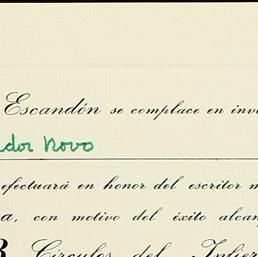 Escandón se complace en inv
dor Novo
efectuará en honor del escritor m
a, con motivo del éxito alcan
Círculos del Infier